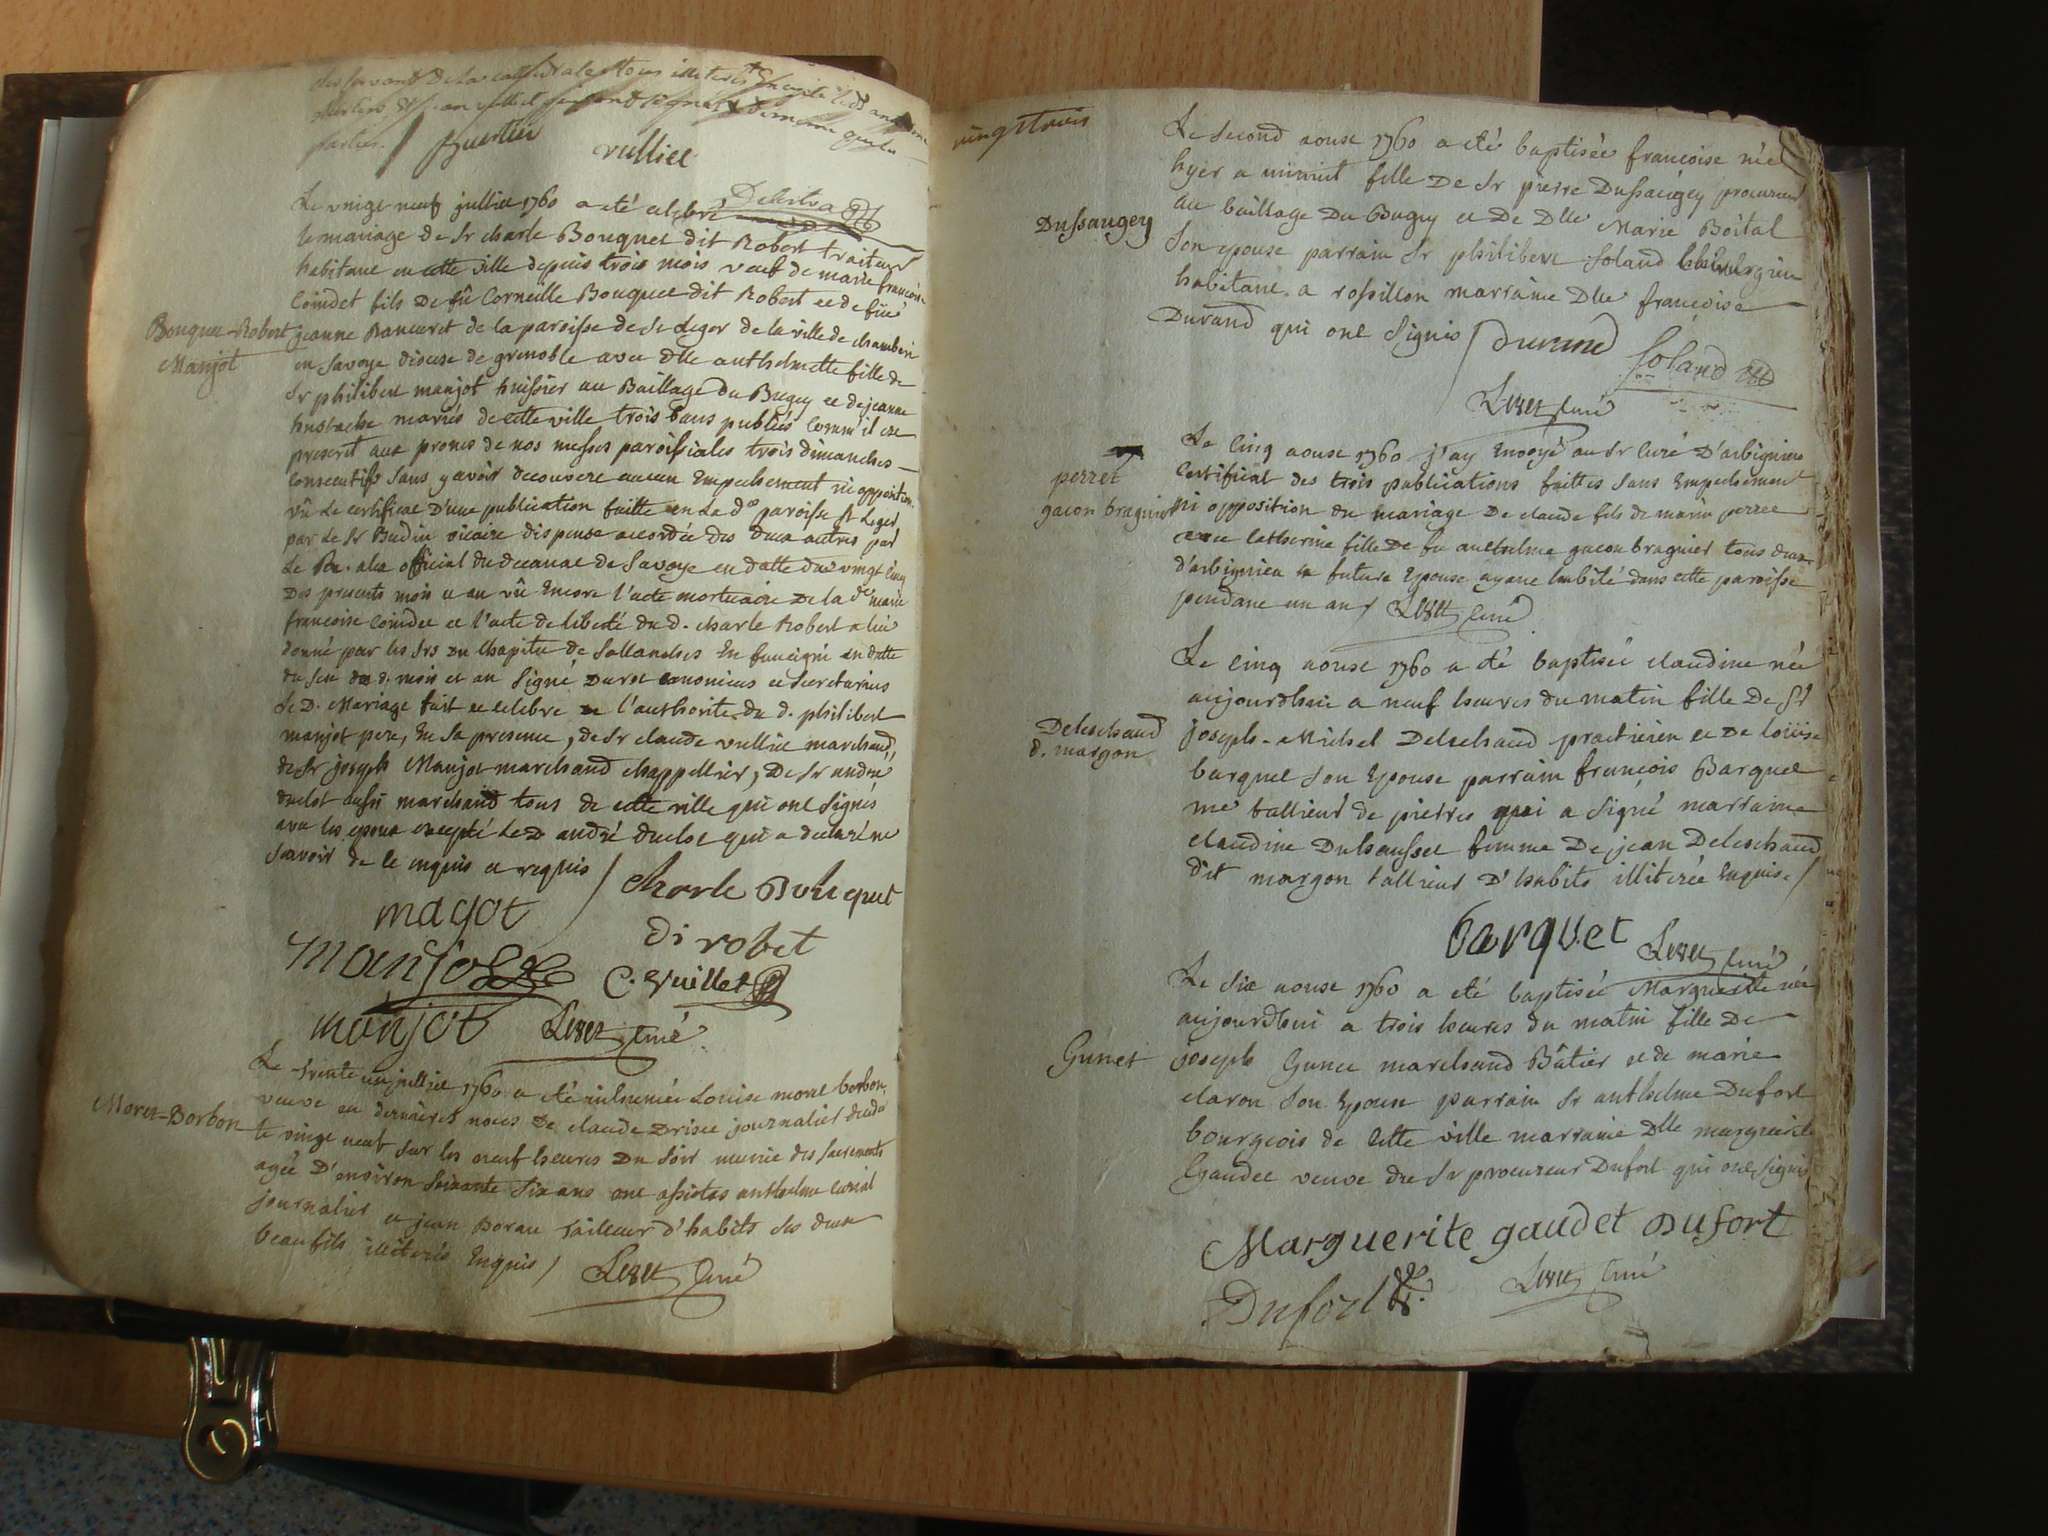 parties. / Quertier
vulliet
Le vingt neuf julliet 1760 a été celebré
le mariage de Sr charle Bouquet dit Robert traiteur
habitant en cette ville depuis trois mois veuf de marie françoise
Coindet fils de fû Corneille Bouquet dit Robert et de füe
Bouquet-Robert
Manjot
jeanne Bancuret de la paroisse de St Leger de la ville de chamberi
en Savoye diocese de grenoble avec dlle anthelmette fille de
Sr philibert manjot huissier au Baillage du Bugey et de jeanne
hustache mariés de cette ville trois bans publiés comm'il est
prescrit aux prones de nos messes paroissiales trois dimanches
consecutifs sans y avoir decouvert aucun Empechement ni opposition
vû le certificat d'une publication faitte en la de paroisse St Leger
par le Sr Budin vicaire dispense accordée des deux autres par
le Rd. official du decanat de Savoye en datte du vingt cinq
des presents mois et an vû Encore l'acte mortuaire de la de marie
françoise Coindet et l'acte de liberté du d. charle Robert a luy
donné par les Srs du chapitre de Sallanches En faucigni en datte
du d. mois et an Signé Duret canonicus et Secretarius
Le D. Mariage fait et celebré de l'authorité du d. philibert
manjot pere, En Sa presence, de Sr claude vulliet marchand,
de Sr joseph Manjot marchand chappellier, De Sr andré
duclot aussi marchand tous de cette ville qui ont Signés
avec les epoux excepté led andré duclot qui a declaré ne
sçavoir de ce enquis et requis / charle Bouquet
magot
di robet
manjot
C. Vuillet
manjot
Curé
Le trente un julliet 1760 a été inhumée Louise moret borbon
veuve en dernieres noces de claude journalier
Moret-Borbon
le vingt neuf sur les neuf heures du Soir munie des Sacrements
agée D'environ Soixante Six ans ont assistés anthelme
journalier et jean tailleur d'habits ses deux
beaufils illiterés Enquis / Curé
vingt trois
Le Second aoust 1760 a été baptisée françoise née
hyer a minuit fille De Sr pierre Dussaugey procureur
au baillage Du Bugey et De Dlle Marie Boital
Dussaugey
Son epouse parrain Sr philibert Soland
habitant a rossillon marraine Dlle françoise
Durand qui ont Signés / Durand
Soland
Curé
Le Cinq aoust 1760 j'ay Envoyé au Sr Curé D'arbignieu
perret
Certificat des trois publications faittes Sans Empechement
gacon bragnier
ni opposition du mariage De claude fils de perret
avec Catherine fille De fu anthelme gacon bragnier tous deux
d'arbignieu la future Epouse ayant habité dans cette paroisse
pendant un an / Curé
Le Cinq aoust 1760 a été baptisée claudine née
aujourdhui a neuf heures du matin fille De Sr
joseph-Michel Deleschaud practicien et De Loüise
Deleschaud
d. margon
barquet son Epouse parrain françois Barquet
me tallieur de pierres qui a Signé marraine
claudine Duhausset femme De jean Deleschaud
dit margon tallieur D'habits illiterée Enquise /
barquet
Curé
Le Six aoust 1760 a été baptisée Marguerite née
aujourdhui a trois heures du matin fille De
Gunet
joseph Gunet marchand Bâtier et de marie
claron Son Epouse parrain Sr anthelme Dufort
bourgeois de Cette ville marraine Dlle marguerite
Gaudet veuve du Sr procureur Dufort qui ont Signés
Marguerite gaudet Dufort
Dufort
Curé